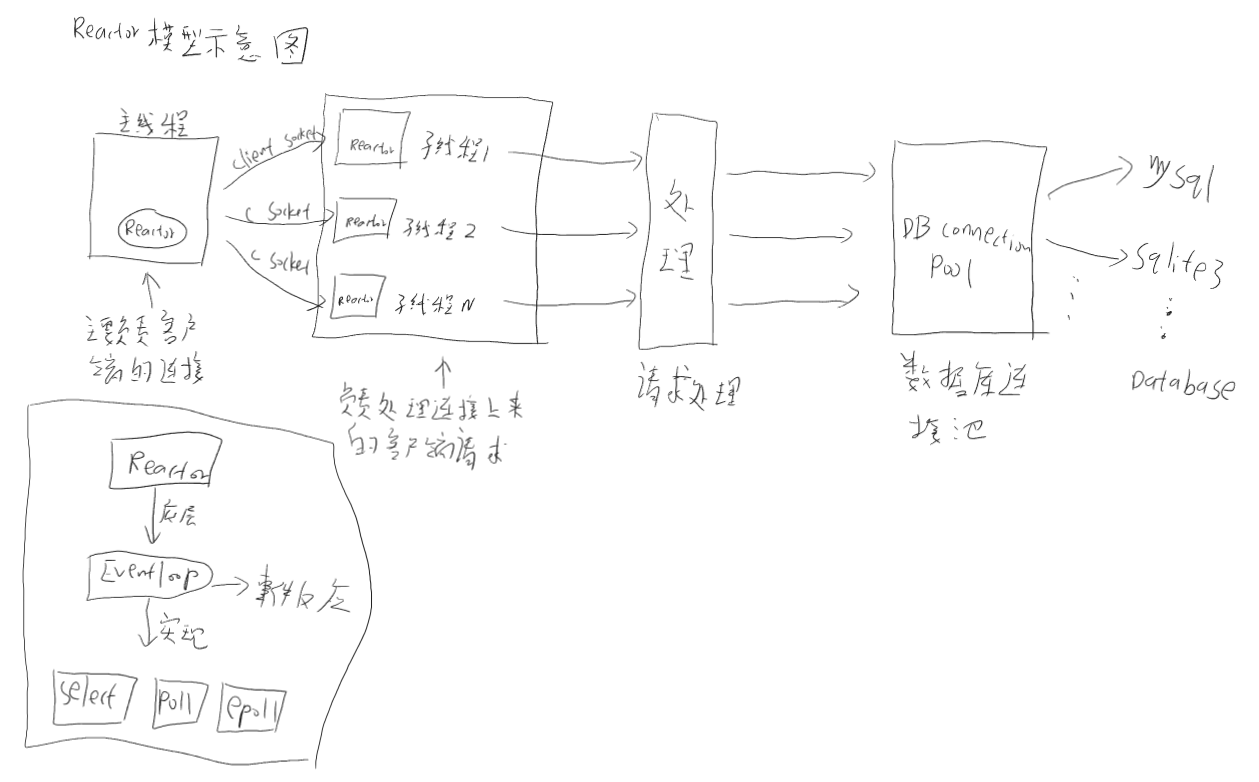 Reactor模型示意图
主线程
Reactor
主要负责客户
端的连接
client socket
c socket
c socket
Reactor
子线程1
Reactor
子线程2
Reactor
子线程N
负责处理连接上来
的客户端请求
处
理
请求处理
DB connection
Pool
数据库连
接池
MySql
Sqlite3
Database
Reactor
底层
Eventloop
事件反应
实现
select
poll
epoll